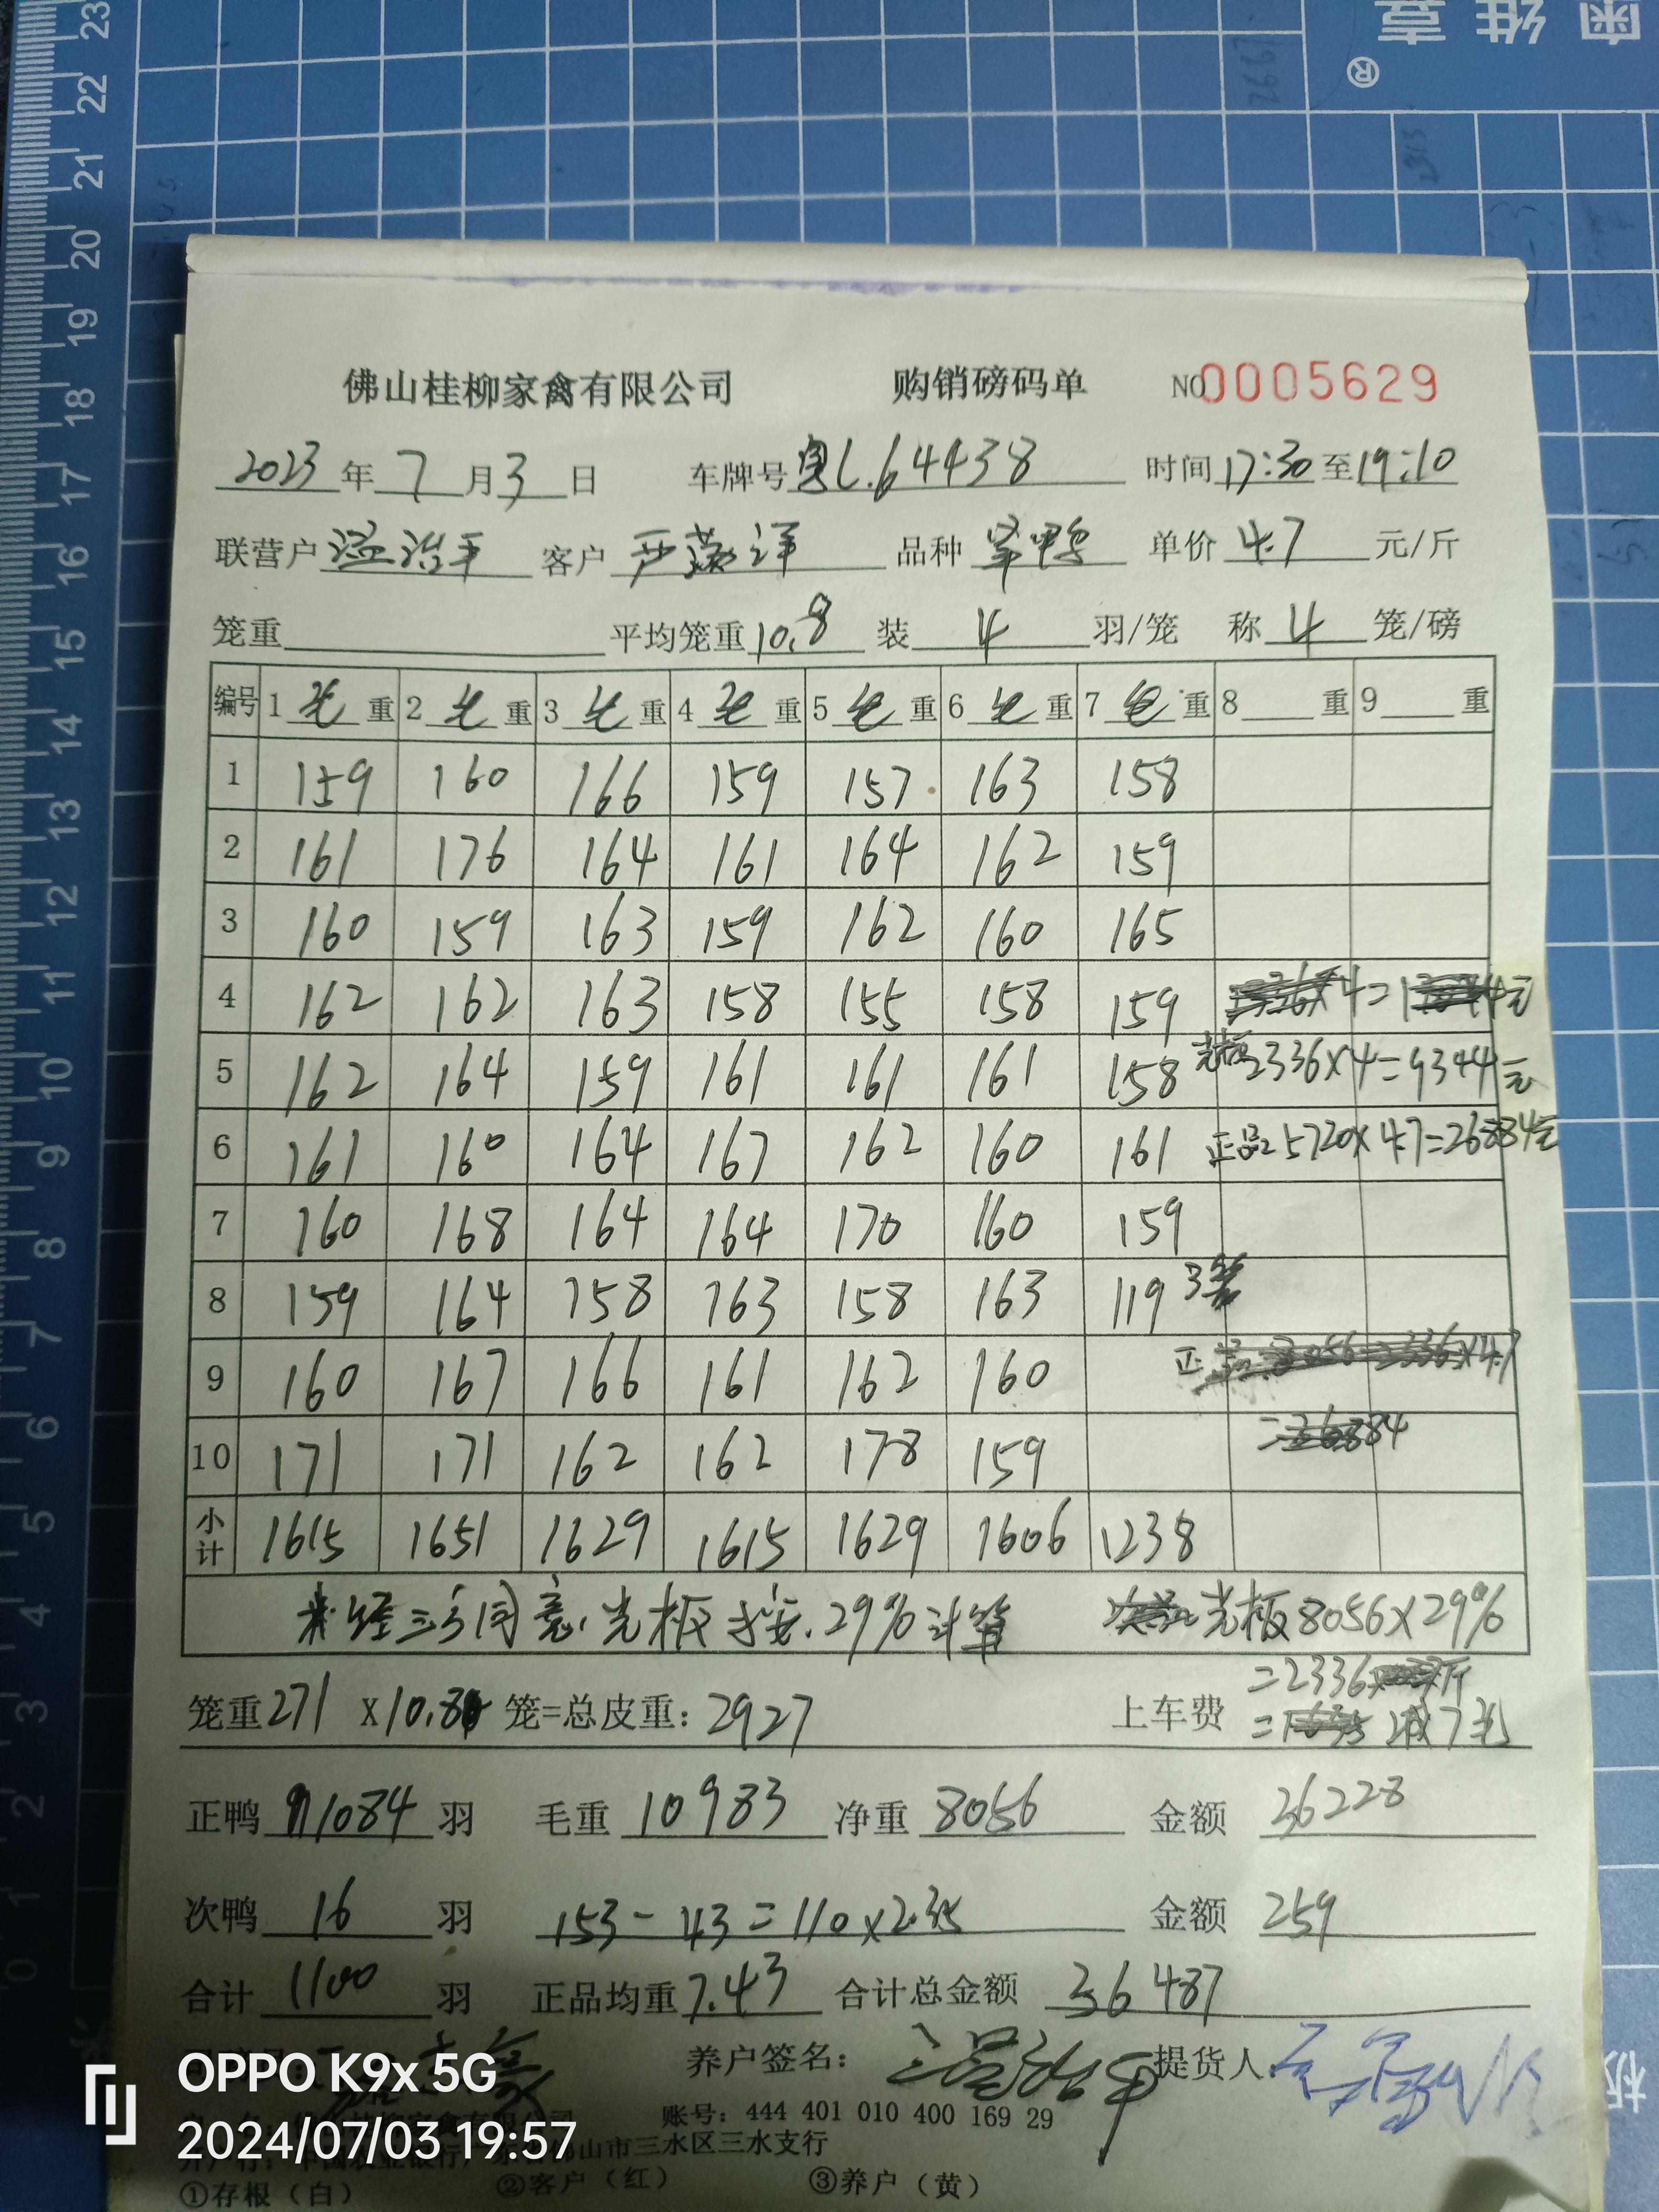 23 22 21 20 19 18 17 16 15 14 13 12 11 10 9 8 7 6 5 4 3 2 1 0
奥维嘉®
佛山桂柳家禽有限公司 购销磅码单 NO0005629
2023年7月3日 车牌号粤L.64438 时间17:30至19:10
联营户温治平 客户 品种 单价4.7元/斤
笼重 平均笼重10.8 装4羽/笼 称4笼/磅
编号 1毛重 2毛重 3毛重 4毛重 5毛重 6毛重 7毛重 8重 9重
1 159 160 166 159 157 163 158
2 161 176 164 161 164 162 159
3 160 159 163 159 162 160 165
4 162 162 163 158 155 158 159
5 162 164 159 161 161 161 158 光板2336×4=9344元
6 161 160 164 167 162 160 161 正品5720×4.7=26884元
7 160 168 164 164 170 160 159
8 159 164 158 163 158 163 119 3笼
9 160 167 166 161 162 160
10 171 171 162 162 178 159
小计 1615 1651 1629 1615 1629 1606 1238
经三方同意,光板按.29%计算 光板8056×29%
=2336斤
笼重271×10.8笼=总皮重:2927 上车费
正鸭1084羽 毛重10983 净重8056 金额36228
次鸭16羽 153-43=110×2.35 金额259
合计1100羽 正品均重7.43 合计总金额36487
养户签名: 提货人
账号:444 401 010 400 169 29
佛山市三水区三水支行
①存根(白) ②客户(红) ③养户(黄)
OPPO K9x 5G
2024/07/03 19:57